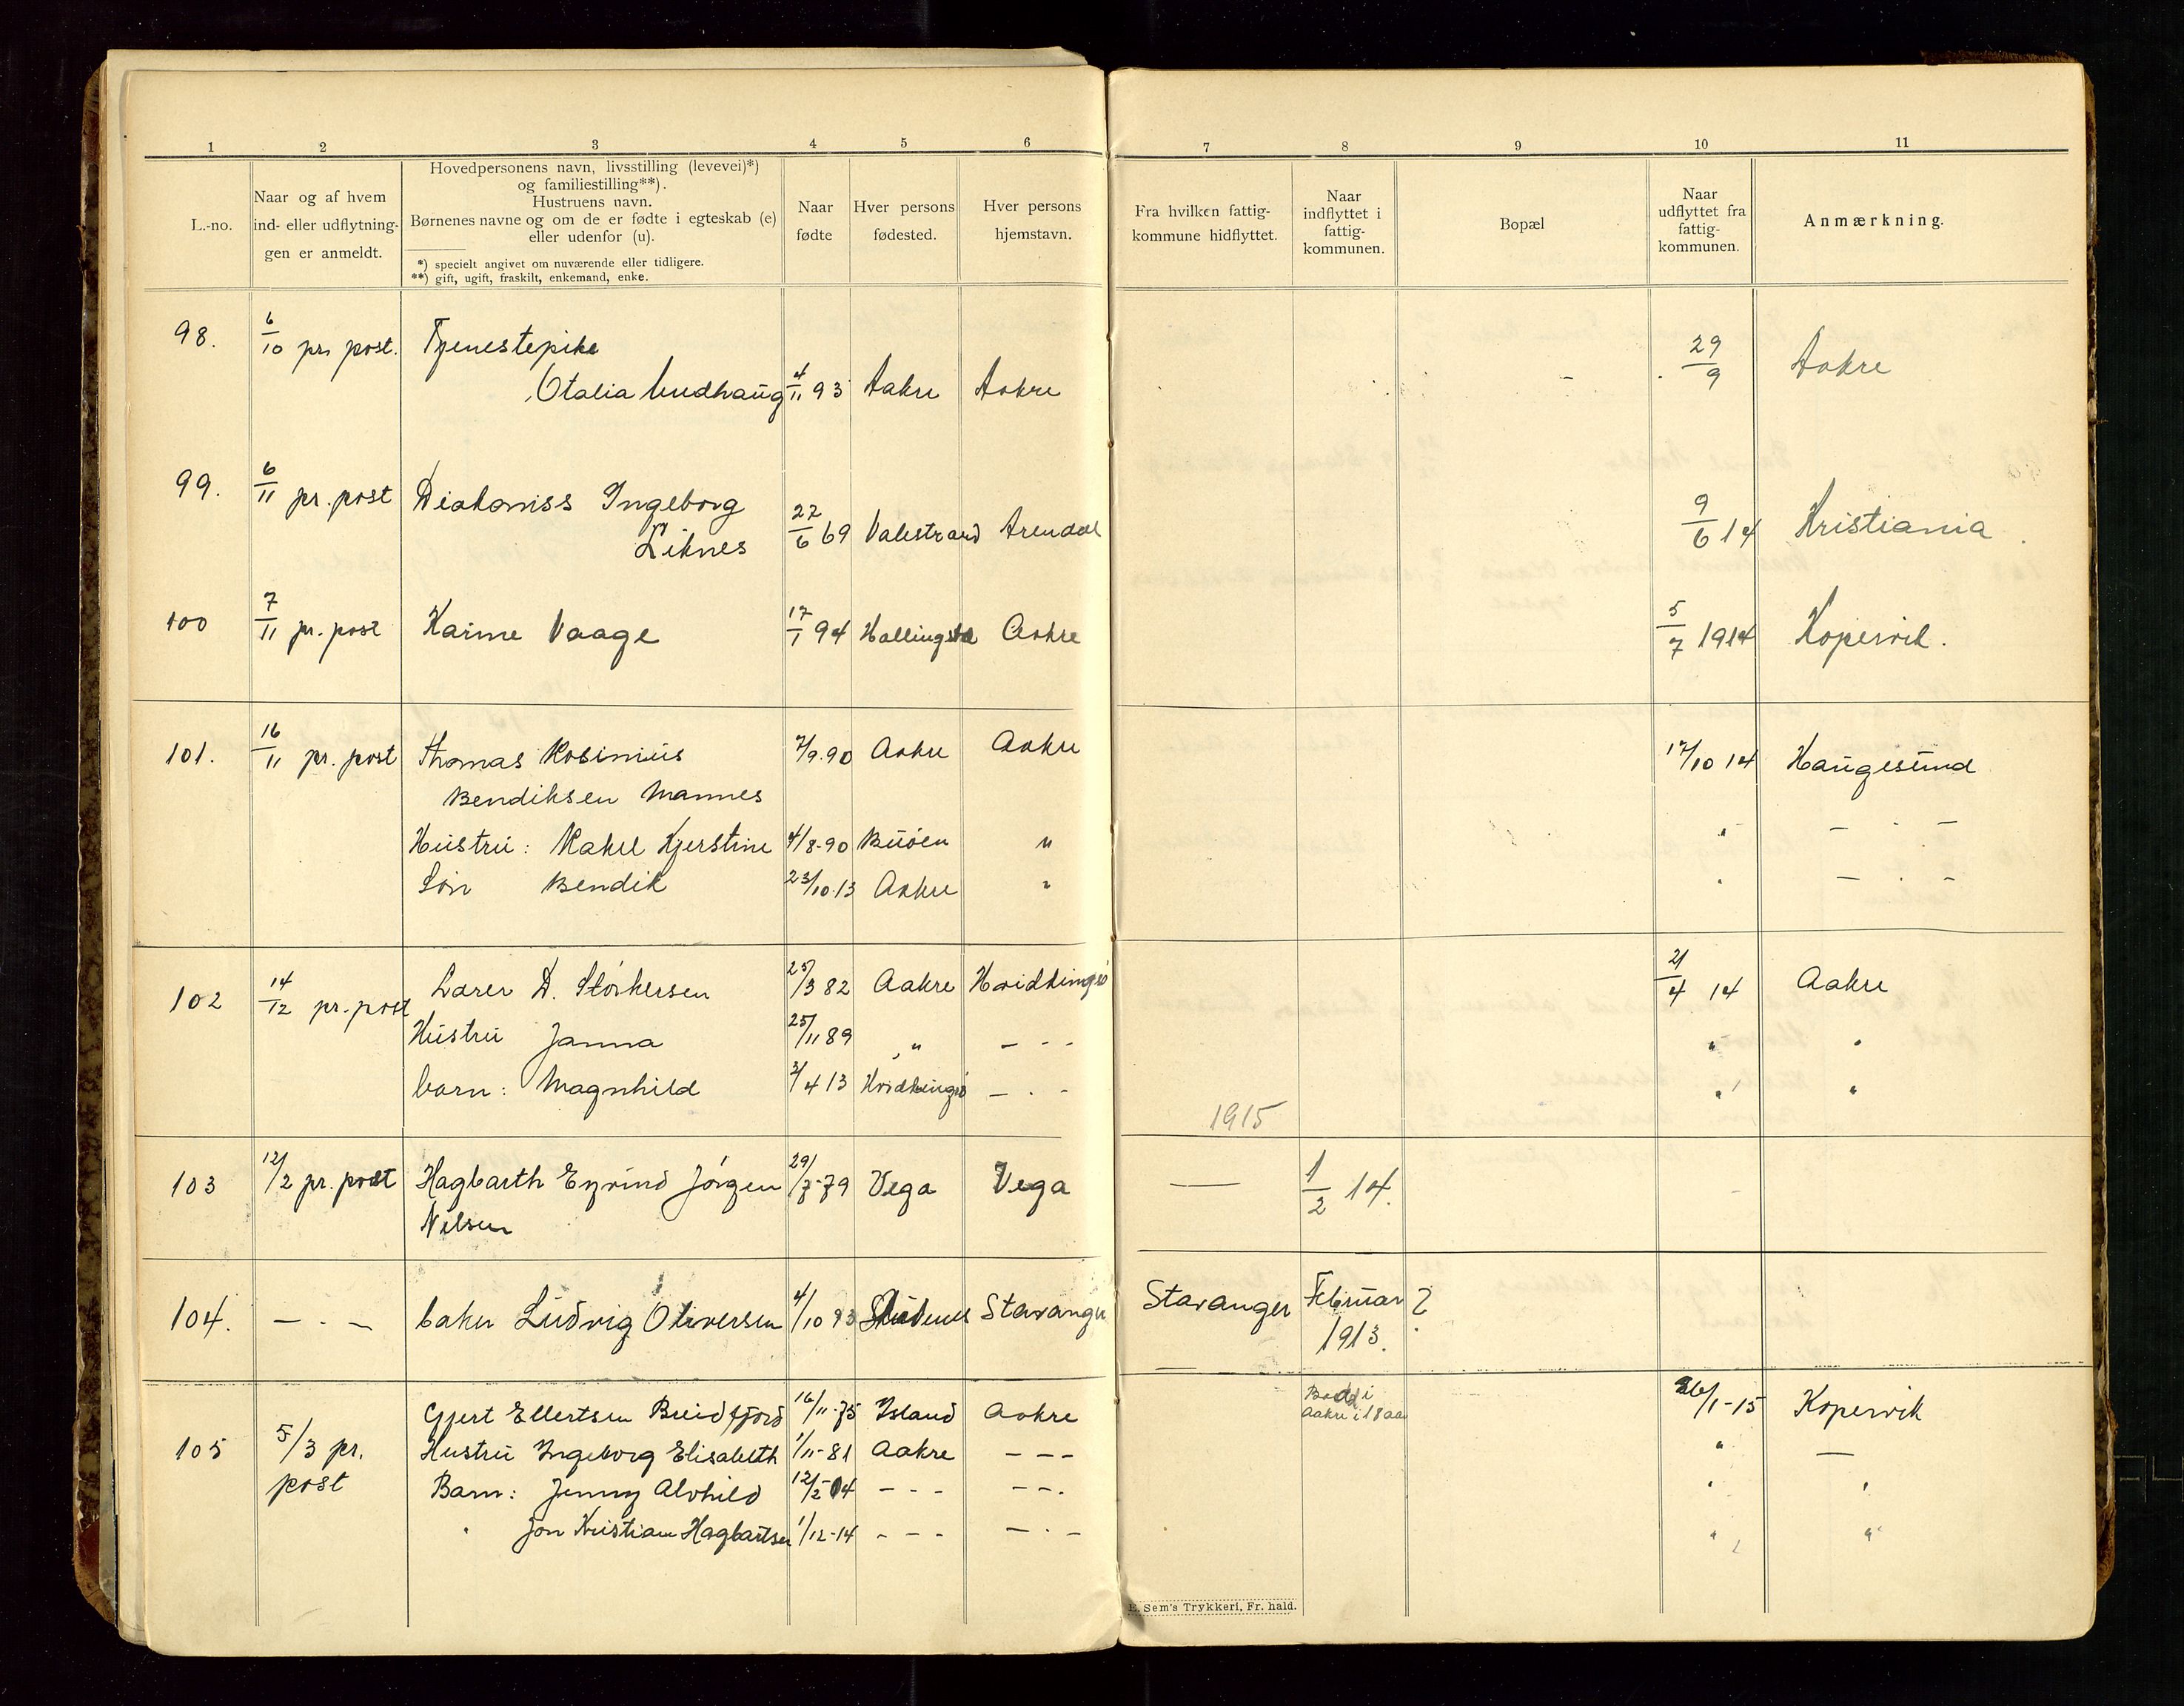 1 2 3 4 5 6 7 8 9 10 11
L.-no.
Naar og af hvem
ind- eller udflytnin-
gen er anmeldt.
Hovedpersonens navn, livsstilling (levevei)*)
og familiestilling**).
Hustruens navn.
Børnenes navne og om de er fødte i egteskab (e)
eller udenfor (u).
*) specielt angivet om nuværende eller tidligere.
**) gift, ugift, fraskilt, enkemand, enke.
Naar
fødte
Hver persons
fødested.
Hver persons
hjemstavn.
Fra hvilken fattig-
kommune hidflyttet.
Naar
indflyttet i
fattig-
kommunen.
Bopæl
Naar
udflyttet fra
fattig-
kommunen.
Anmærkning.
98. 6/10 pr. post. Tjenestepike
Otalia 4/11 93 Aakre Aakre 29/9 Aakre
99. 6/11 pr. post Diakoniss Ingeborg
Liknes 22/6 69 Valestrand Arendal 9/6 14 Kristiania
100 7/11 pr. post Karine Vaage 17/1 94 Aakre 5/7 1914 Kopervik.
101. 16/11 pr. post Thomas Rosinius 7/9.90 Aakre Aakre 17/10 14 Haugesund
Bendiksen Mannes
Hustru: Rakel Kjerstine 4/8-90 Buöen " " — . —
Sön Bendik 23/10.13 Aakre " " — . —
102 14/12 pr. post D. Störkersen 25/3 82 Aakre Hvidkingsö 21/4 14 Aakre
Hustru Janna 25/11 89 " — - - " "
barn: Magnhild 2/4 13 Hvidkingsö — . - " "
1915
103 12/2 pr. post Hagbarth Eyvind Jörgen 29/7-79 Vega Vega — 1/2 14.
Nilsen
104. — . — baker Ludvig Oliversen 4/10 93 Skudenes Stavanger Stavanger Februar ?
1913.
105 5/3 pr. post Gjert Ellertsen Breidfjord 16/11-75 Island Aakre Bodd i
Aakre i 18 aar 26/1-15 Kopervik
Hustru Ingeborg Elisabeth 1/11-81 Aakre - - - " —
Barn: Jenny Alvhild 12/2-04 - - - - - . " "
" Jon Kristian Hagbartsen 1/12-14 - - - — . — " "
E. Sem's Trykkeri, Fr. hald.